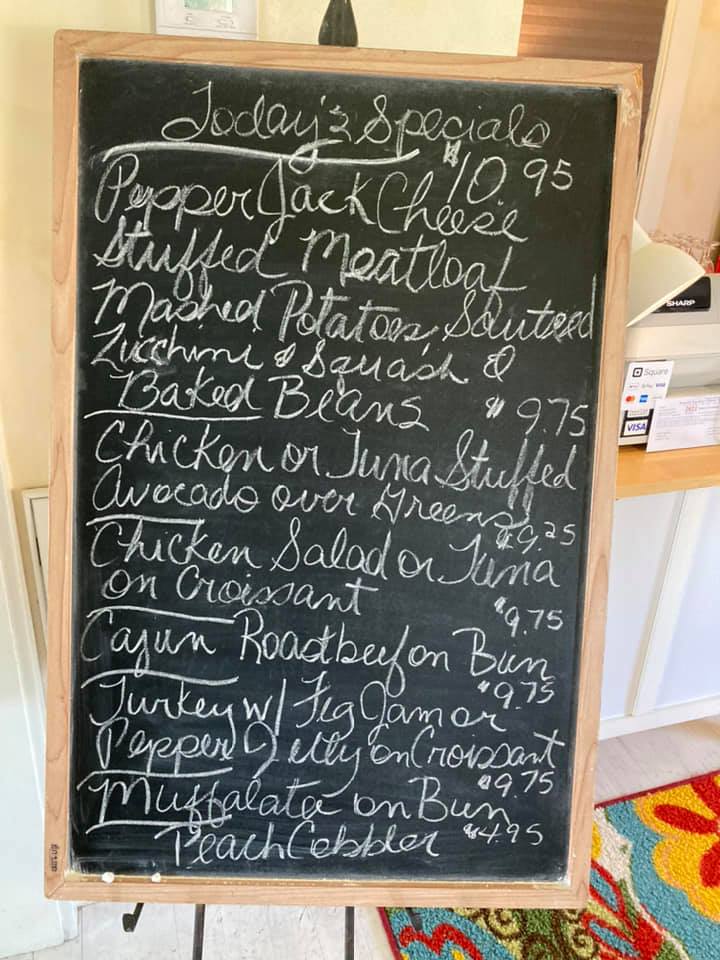 Today's Specials
$10.95
Pepper Jack Cheese
Stuffed Meatloaf
Mashed Potatoes, Sauteed
Zucchini & Squash &
Baked Beans $9.75
Chicken or Tuna Stuffed
Avocado over Greens
$9.25
Chicken Salad or Tuna
on Croissant
$9.75
Cajun Roastbeef on Bun
$9.75
Turkey w/ Fig Jam or
Pepper Jelly on Croissant
$9.75
Muffalata on Bun
Peach Cobbler $4.95
SHARP
Square
VISA